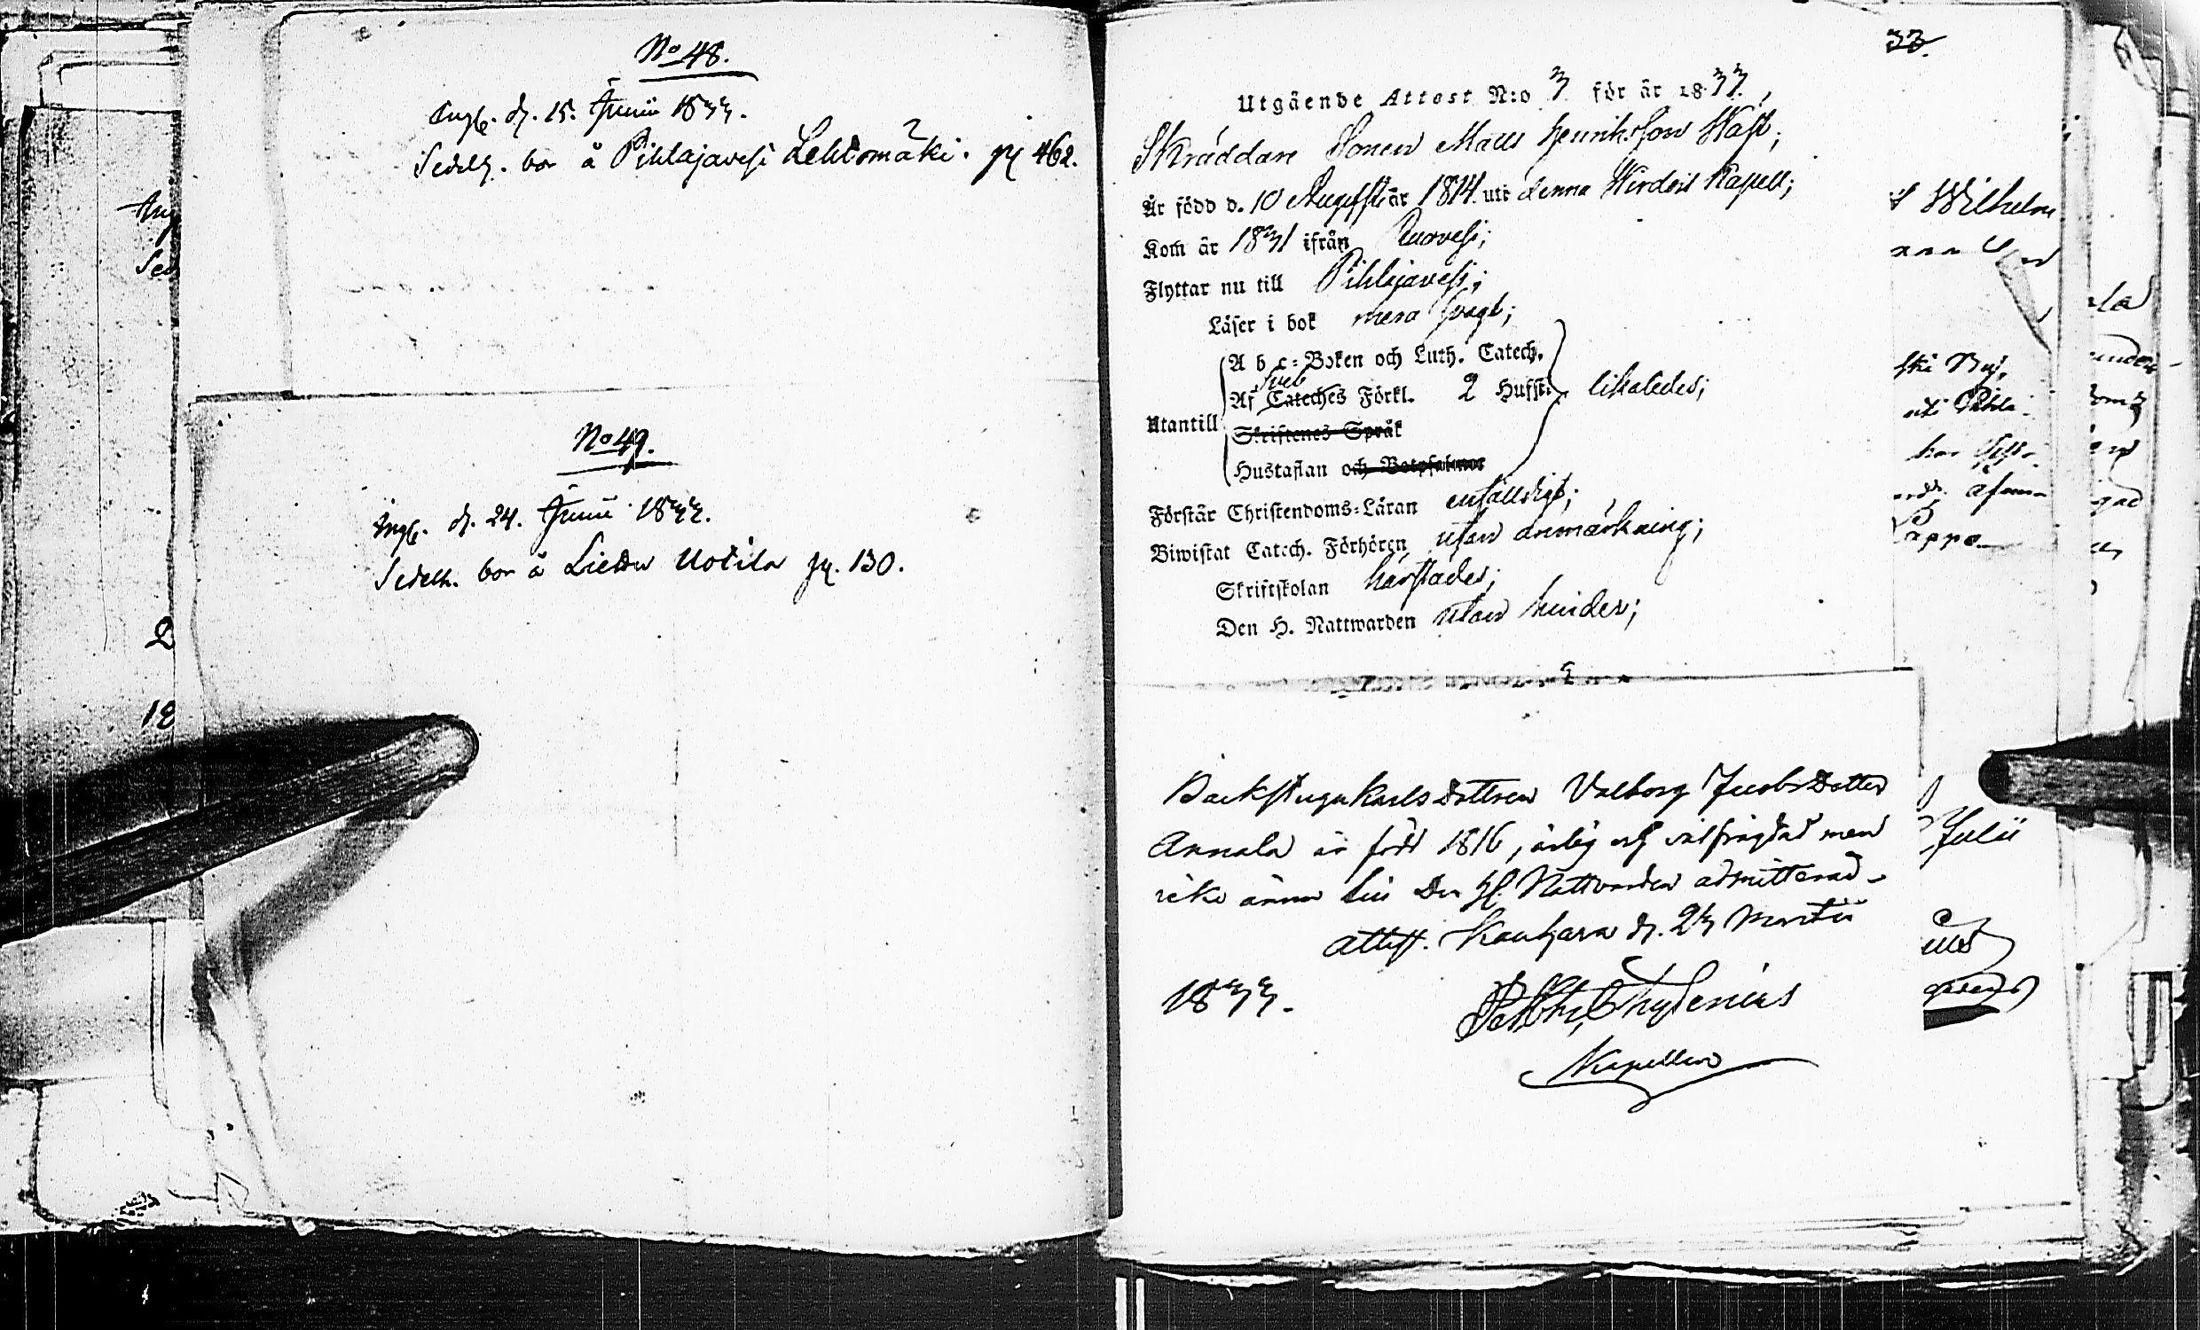 No 48.
Ingl. d. 15. Junii 1833.
Sedelh. bor å Pihlajavesi Lehtomäki. pg 462.
No 49.
Ingl. d. 24. Junii 1833.
Sedelh. bor å Liedhu Uotila pg. 130.
33.
Utgående Attest N:o 3 för år 1833,
Skräddare Sonen Matts Henriksson Wast;
Är född d. 10 Augusti år 1814 uti denna Wirdois Kapell;
Kom år 1831 ifrån Ruovesi;
Flyttar nu till Pihlajavesi;
Läser i bok mera svagt;
A b c-Boken och Luth. Catech.
Sveb
Af Cateches Förkl. 2 Hufst. likaledes;
Utantill
Skriftenes Språk
Hustaflan och Botpsalmer
Förstår Christendoms-Läran enfalldigt;
Biwistat Catech. Förhören utan anmärkning;
Skriftskolan härstädes;
Den H. Nattwarden utan hinder;
Backstugukarls dottren Valborg Jacobs Dotter
Annala är född 1816, ärlig och välfrägdad men
icke ännu till Den H. Nattvarden admitterad.
attest. Kauhava d. 23 Martii
1833.
Chydenius
Kapellan
Wilhelm
Julii